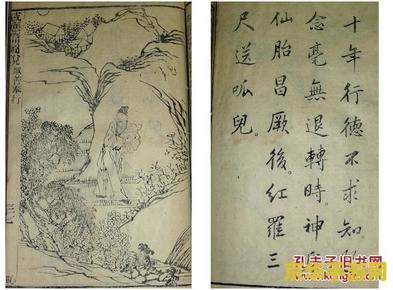 十年行德不求知
念毫無退轉時。神
仙胎昌厥後。紅羅三
尺送呱兒。
呱兒 眾善奉行
孔夫子旧书网